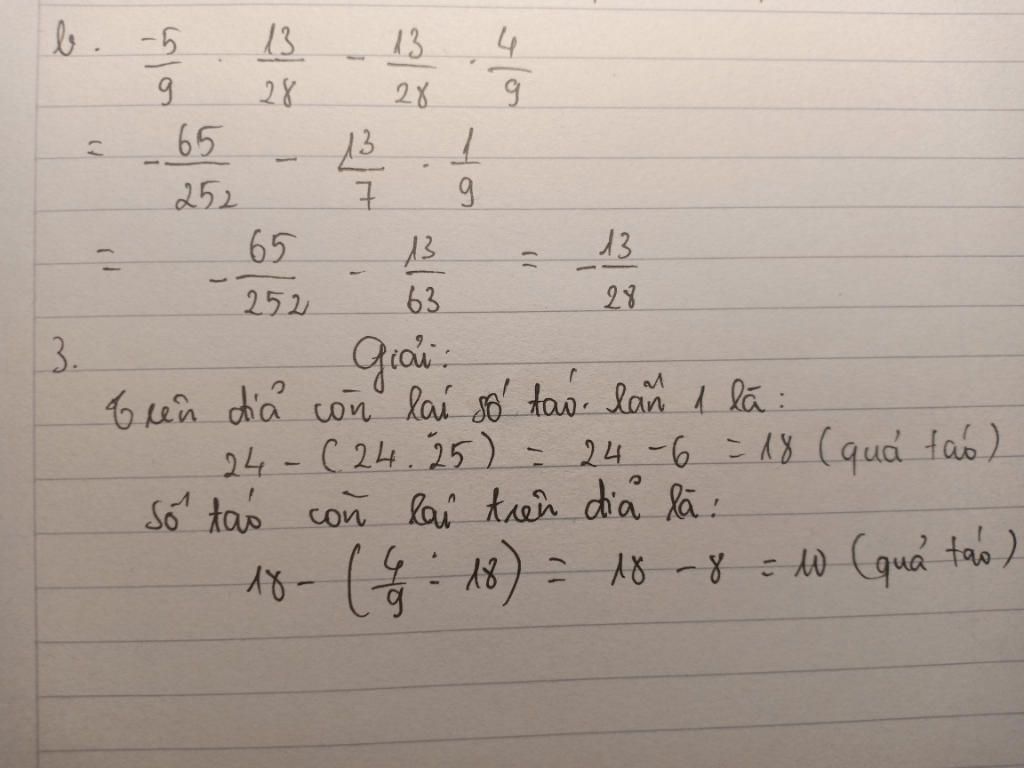 b. -5/9 . 13/28 - 13/28 . 4/9
= -65/252 - 13/7 . 1/9
= -65/252 - 13/63 = -13/28
3. Giải:
Trên dĩa còn lại số táo lần 1 là:
24 - (24 . 25) = 24 - 6 = 18 (quả táo)
Số táo còn lại trên dĩa là:
18 - (4/9 : 18) = 18 - 8 = 10 (quả táo)